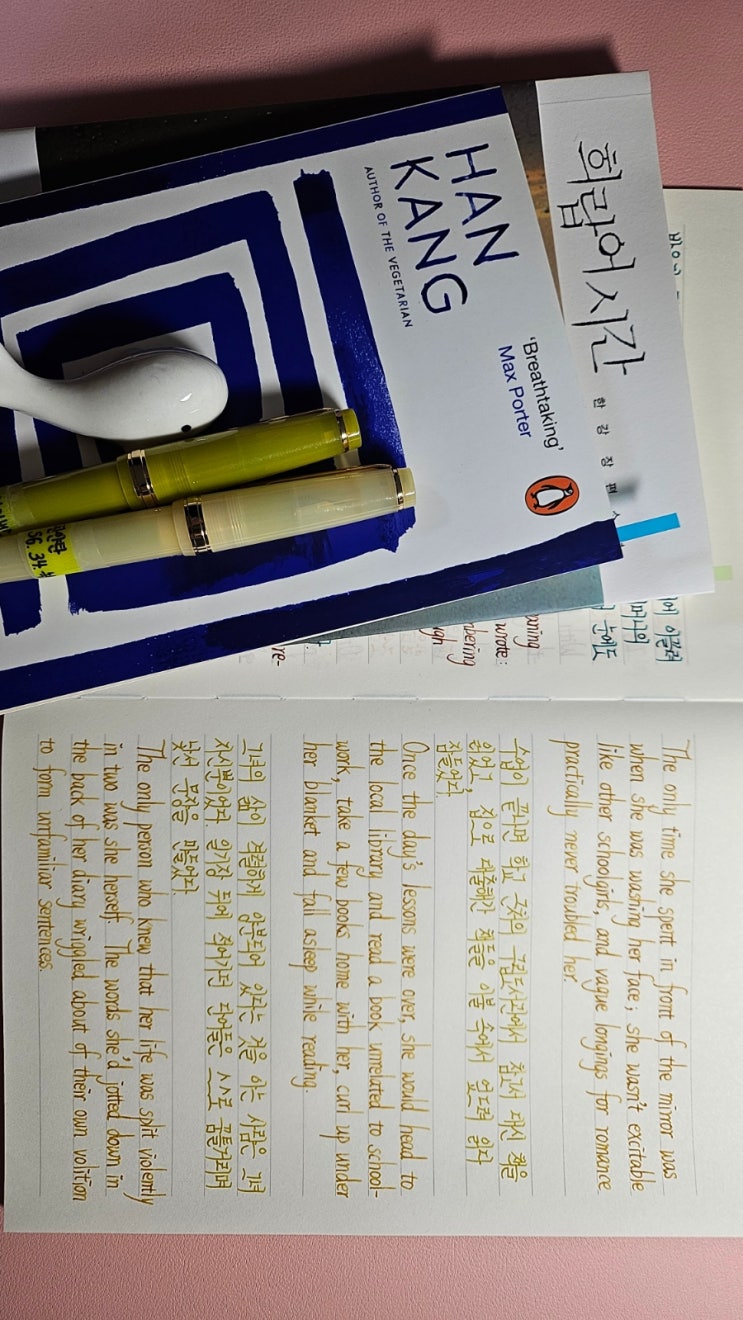 HAN
KANG
AUTHOR OF THE VEGETARIAN
'Breathtaking'
Max Porter
희랍어 시간
한 강 장 편
눈에도
wrote:
The only time she spent in front of the mirror was
when she was washing her face; she wasn't excitable
like other schoolgirls, and vague longings for romance
practically never troubled her.
수업이 끝나면 학교 근처의 구립도서관에서 참고서 대신 책을
읽었고, 집으로 대출해간 책들을 이불 속에서 엎드려 읽다
잠들었다.
Once the day's lessons were over, she would head to
the local library and read a book unrelated to school-
work, take a few books home with her, curl up under
her blanket and fall asleep while reading.
그녀의 삶이 격렬하게 양분되어 있다는 것을 아는 사람은 그녀
자신뿐이었다. 일기장 뒤에 적어가던 단어들은 스스로 꿈틀거리며
낯선 문장을 만들었다.
The only person who knew that her life was split violently
in two was she herself. The words she'd jotted down in
the back of her diary wriggled about of their own volition
to form unfamiliar sentences.